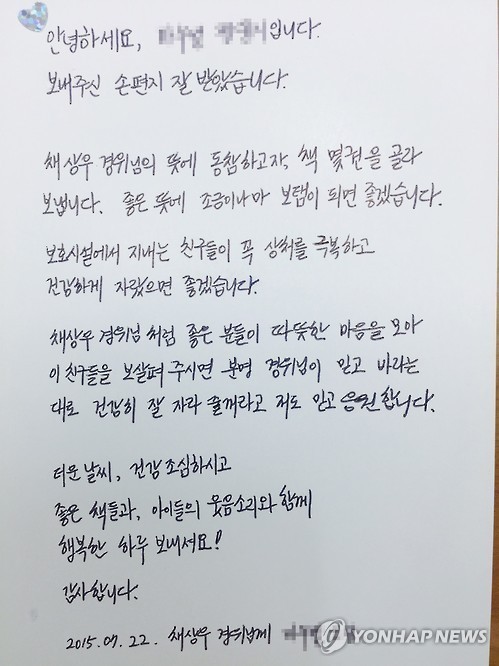 안녕하세요, 입니다.
보내주신 손편지 잘 받았습니다.
채상우 경위님의 뜻에 동참하고자, 책 몇권을 골라
보냅니다. 좋은 뜻에 조금이나마 보탬이 되면 좋겠습니다.
보호시설에서 지내는 친구들이 꼭 상처를 극복하고
건강하게 자랐으면 좋겠습니다.
채상우 경위님처럼 좋은 분들이 따뜻한 마음을 모아
이 친구들을 보살펴 주시면 분명 경위님이 믿고 바라는
대로 건강히 잘 자라 줄꺼라고 저도 믿고 응원합니다.
더운 날씨, 건강 조심하시고
좋은 책들과, 아이들의 웃음소리와 함께
행복한 하루 보내셔요!
감사합니다.
2015.07.22. 채상우 경위님께
YONHAP NEWS